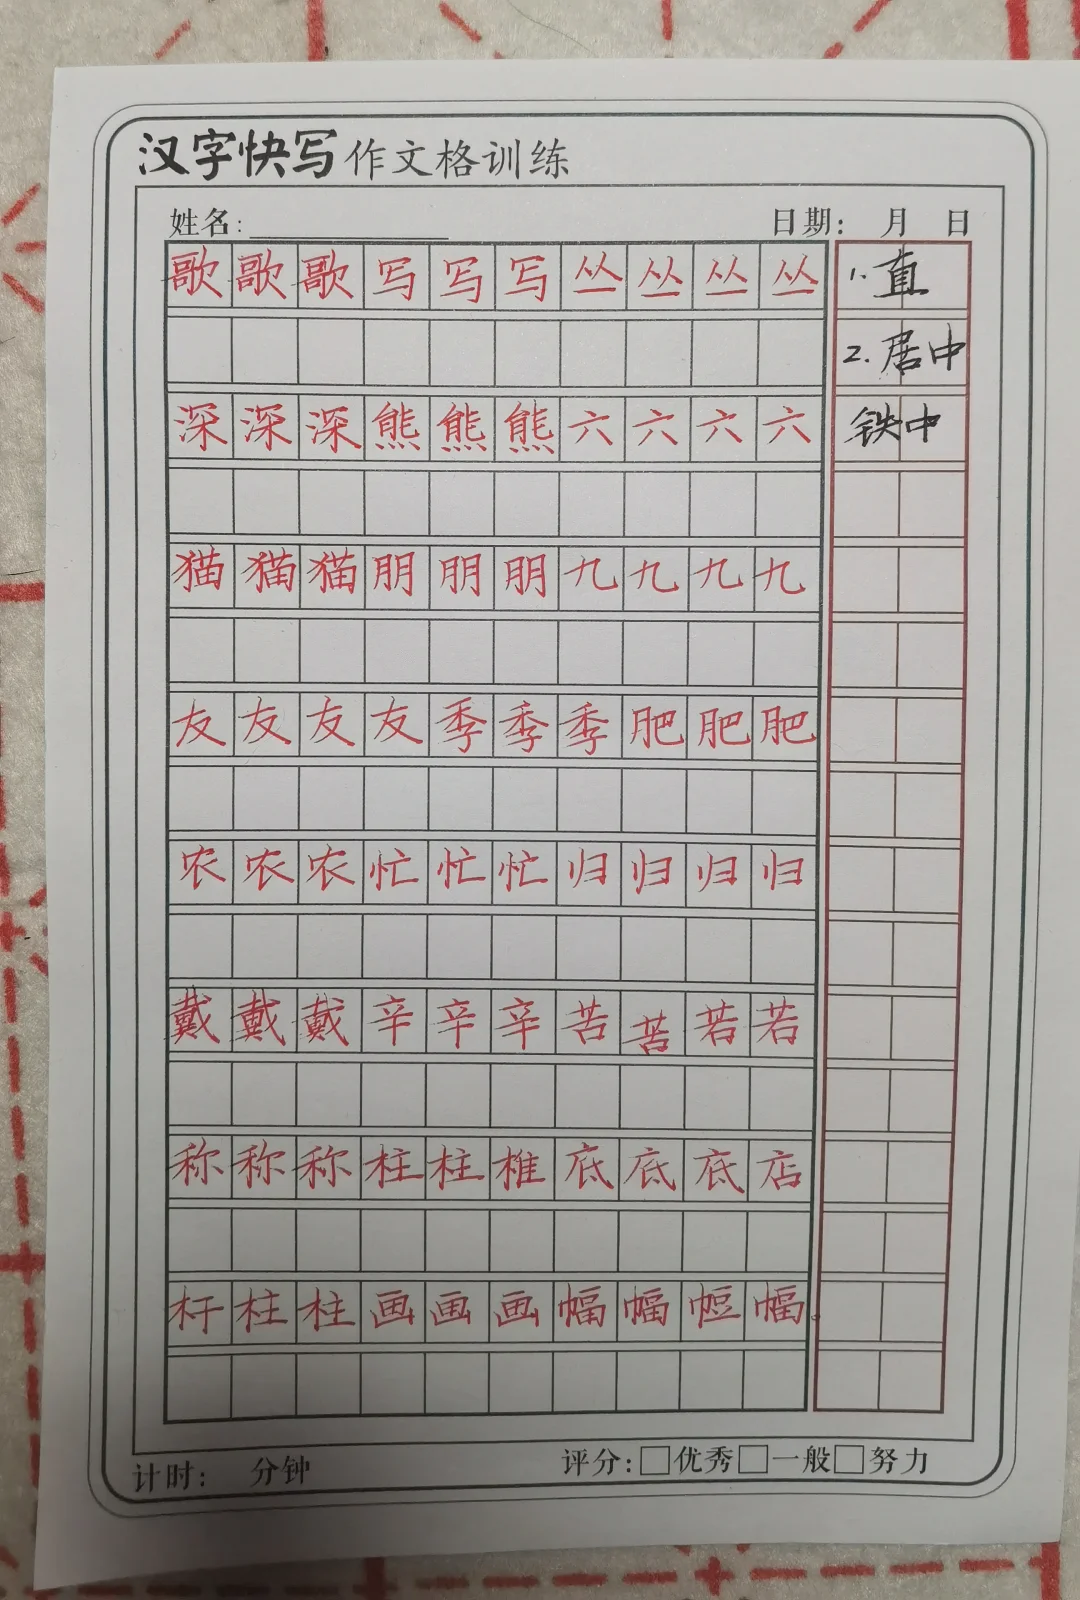 汉字快写作文格训练
姓名: 日期: 月 日
歌歌歌写写写丛丛丛丛
1.直
2.居中
深深深熊熊熊六六六六
铁中
猫猫猫朋朋朋九九九九
友友友友季季季肥肥肥
农农农忙忙忙归归归归
戴戴戴辛辛辛苦苦若若
称称称柱柱椎底底底店
杆柱柱画画画幅幅幅。
计时: 分钟 评分:□优秀□一般□努力